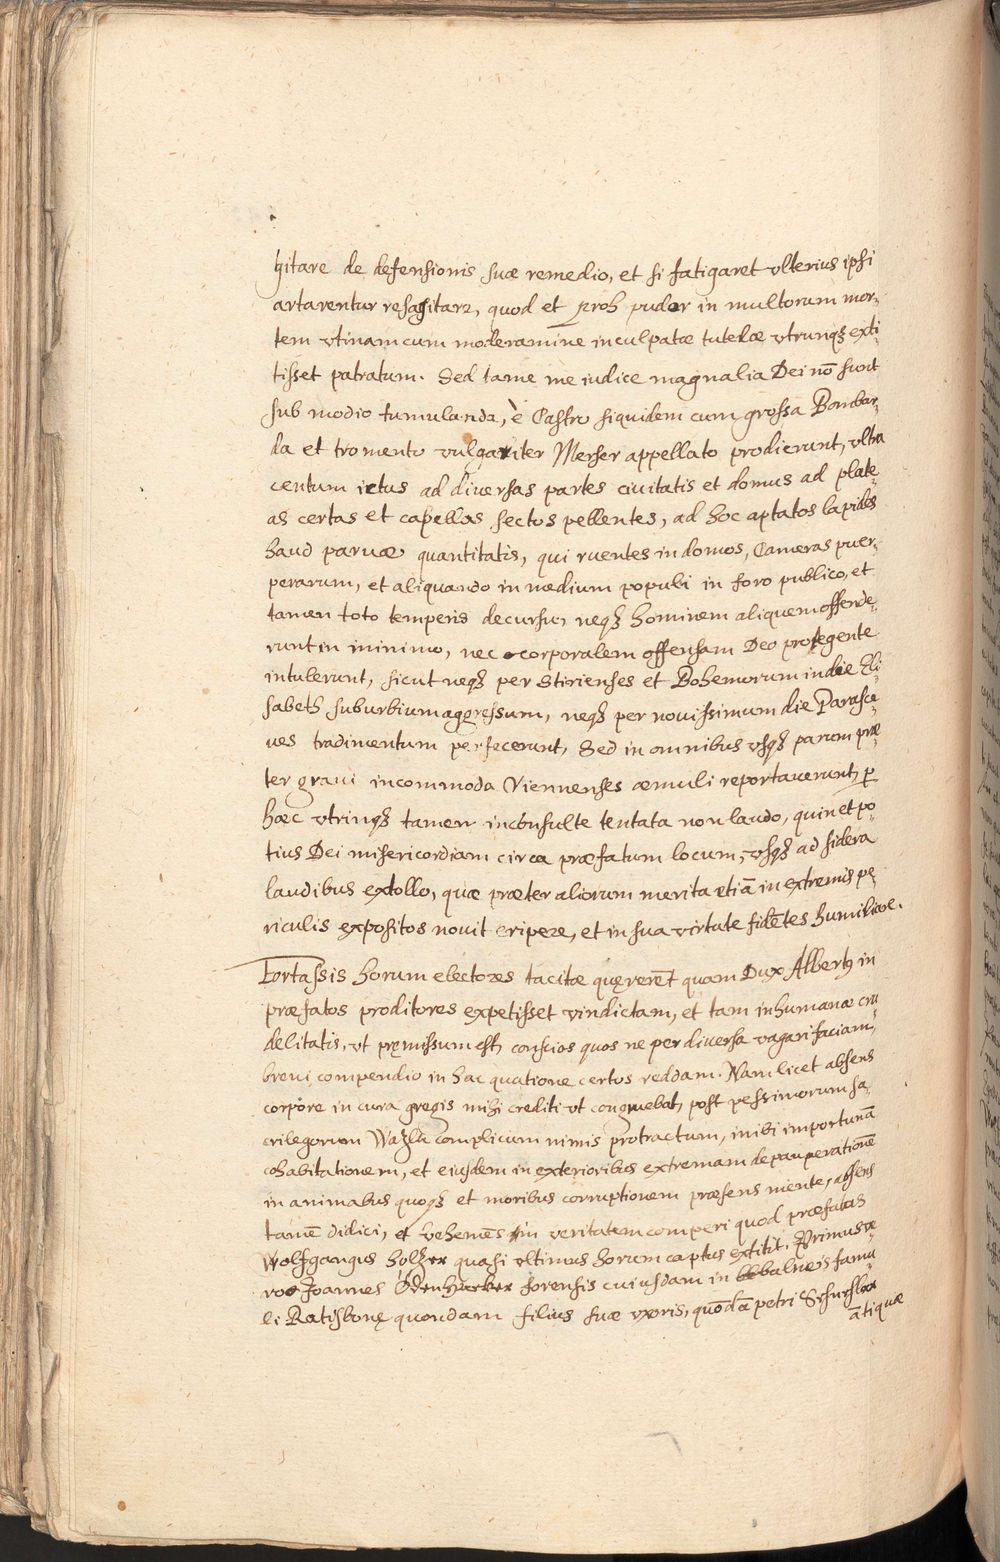 gitare de defensionis suæ remedio, et si fatigaret vlterius ipsi
artarentur resagitare, quod et proh pudor in multorum mor¬
tem vtinam cum moderamine inculpatæ tutelæ vtrunqꝫ exti¬
tisset patratum. Sed tame me iudice magnalia Dei nō sunt
sub modio tumulanda, è Castro siquidem cum grossa Bombar¬
da et tromento vulgariter Merser appellato prodierunt, vltra
centum ictus ad diuersas partes ciuitatis et domus ad plate¬
as certas et capellas sectos pellentes, ad hoc aptatos lapides
haud paruæ quantitatis, qui ruentes in domos, Cameras puer¬
perarum, et aliquando in medium populi in foro publico, et
tamen toto temporis decursu, neqꝫ hominem aliquem offende¬
runt in minimo, nec corporalem offensam Deo protegente
intulerunt, sicut neqꝫ per Stirienses et Bohemorum in die Eli¬
sabeth suburbium aggressum, neqꝫ per nouissimum die Parasce¬
ues tradimentum perfecerunt, Sed in omnibus vsqꝫ parum præ
ter graui incommoda Viennenses æmuli reportauerunt, ꝑ
hæc vtrinqꝫ tamen inconsulte tentata non laudo, quin et po¬
tius Dei misericordiam circa præfatum locum, vsqꝫ ad sidera
laudibus extollo, quæ præter aliorum merita etiā in extremis pe¬
riculis expositos nouit eripere, et in sua virtute fidētes humiliare.
Fortassis horum electores tacitæ quęrerēt quam Dux Albertꝰ in
præfatos proditores expetisset vindictam, et tam inhumanæ cru
delitatis, vt pręmissum est, conscios quos ne per diuersa vagari faciam,
breui compendio in hac quatione certos reddam. Nam licet absens
corpore in cura gregis mihi crediti vt congruebat, post pessimorum sa¬
crilegorum Wazla complicum nimis protractum, inibi importunā
cohabitationem, et eiusdem in exterioribus extremam depauperationē
in animabus quoqꝫ et moribus corruptionem præsens mente, absens
tamē didici, et vehemēs in veritatem comperi quod præfatus
Wolfgangus holtzer quasi vltimus horum captus extitit. Primus ve
ro Joannes Odenhacker forensis cuiusdam in balneis famu¬
li Ratisbonę quondam filius suæ vxoris, quōdā petri
ātiquæ